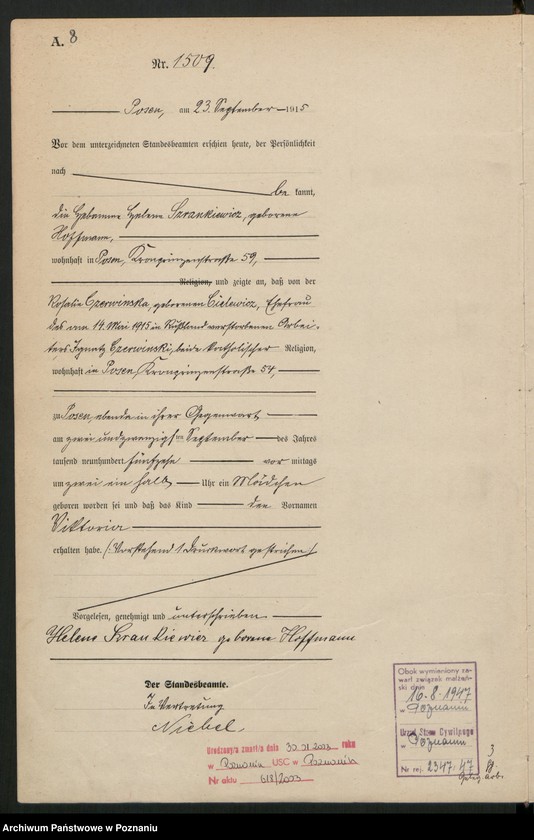 A. 8
Nr. 1509.
Posen, am 23. September 1915
Vor dem unterzeichneten Standesbeamten erschien heute, der Persönlichkeit
nach
be kannt,
die Hebamme Helene Szrankiewicz, geborene
Hoffmann,
wohnhaft in Posen, Kronprinzenstraße 59,
Religion, und zeigte an, daß von der
Rosalie Czerwinska, geborenen Cielewicz, Ehefrau
des am 14. Mai 1915 in Rußland verstorbenen Arbei-
ters Ignatz Czerwinski, beide katholischer Religion,
wohnhaft in Posen, Kronprinzenstraße 54,
zu Posen, ebenda in ihrer Gegenwart
am zwei und zwanzigsten September des Jahres
tausend neunhundert fünfzehn vor mittags
um zwei ein halb Uhr ein Mädchen
geboren worden sei und daß das Kind den Vornamen
Viktoria
erhalten habe. (: Vorstehend 1 Druckwort gestrichen :)
Vorgelesen, genehmigt und unterschrieben
Helene Szrankiewicz geborene Hoffmann
Der Standesbeamte.
In Vertretung
Niebel.
Obok wymieniony za-
warł związek małżeń-
ski dnia 16-8-1947
w Poznaniu
Urząd Stanu Cywilnego
w Poznaniu
Nr rej. 2347/47
Urodzony/a zmarł/a dnia 2003 roku
w Poznaniu USC w Poznaniu
Nr aktu 618/2003
Archiwum Państwowe w Poznaniu